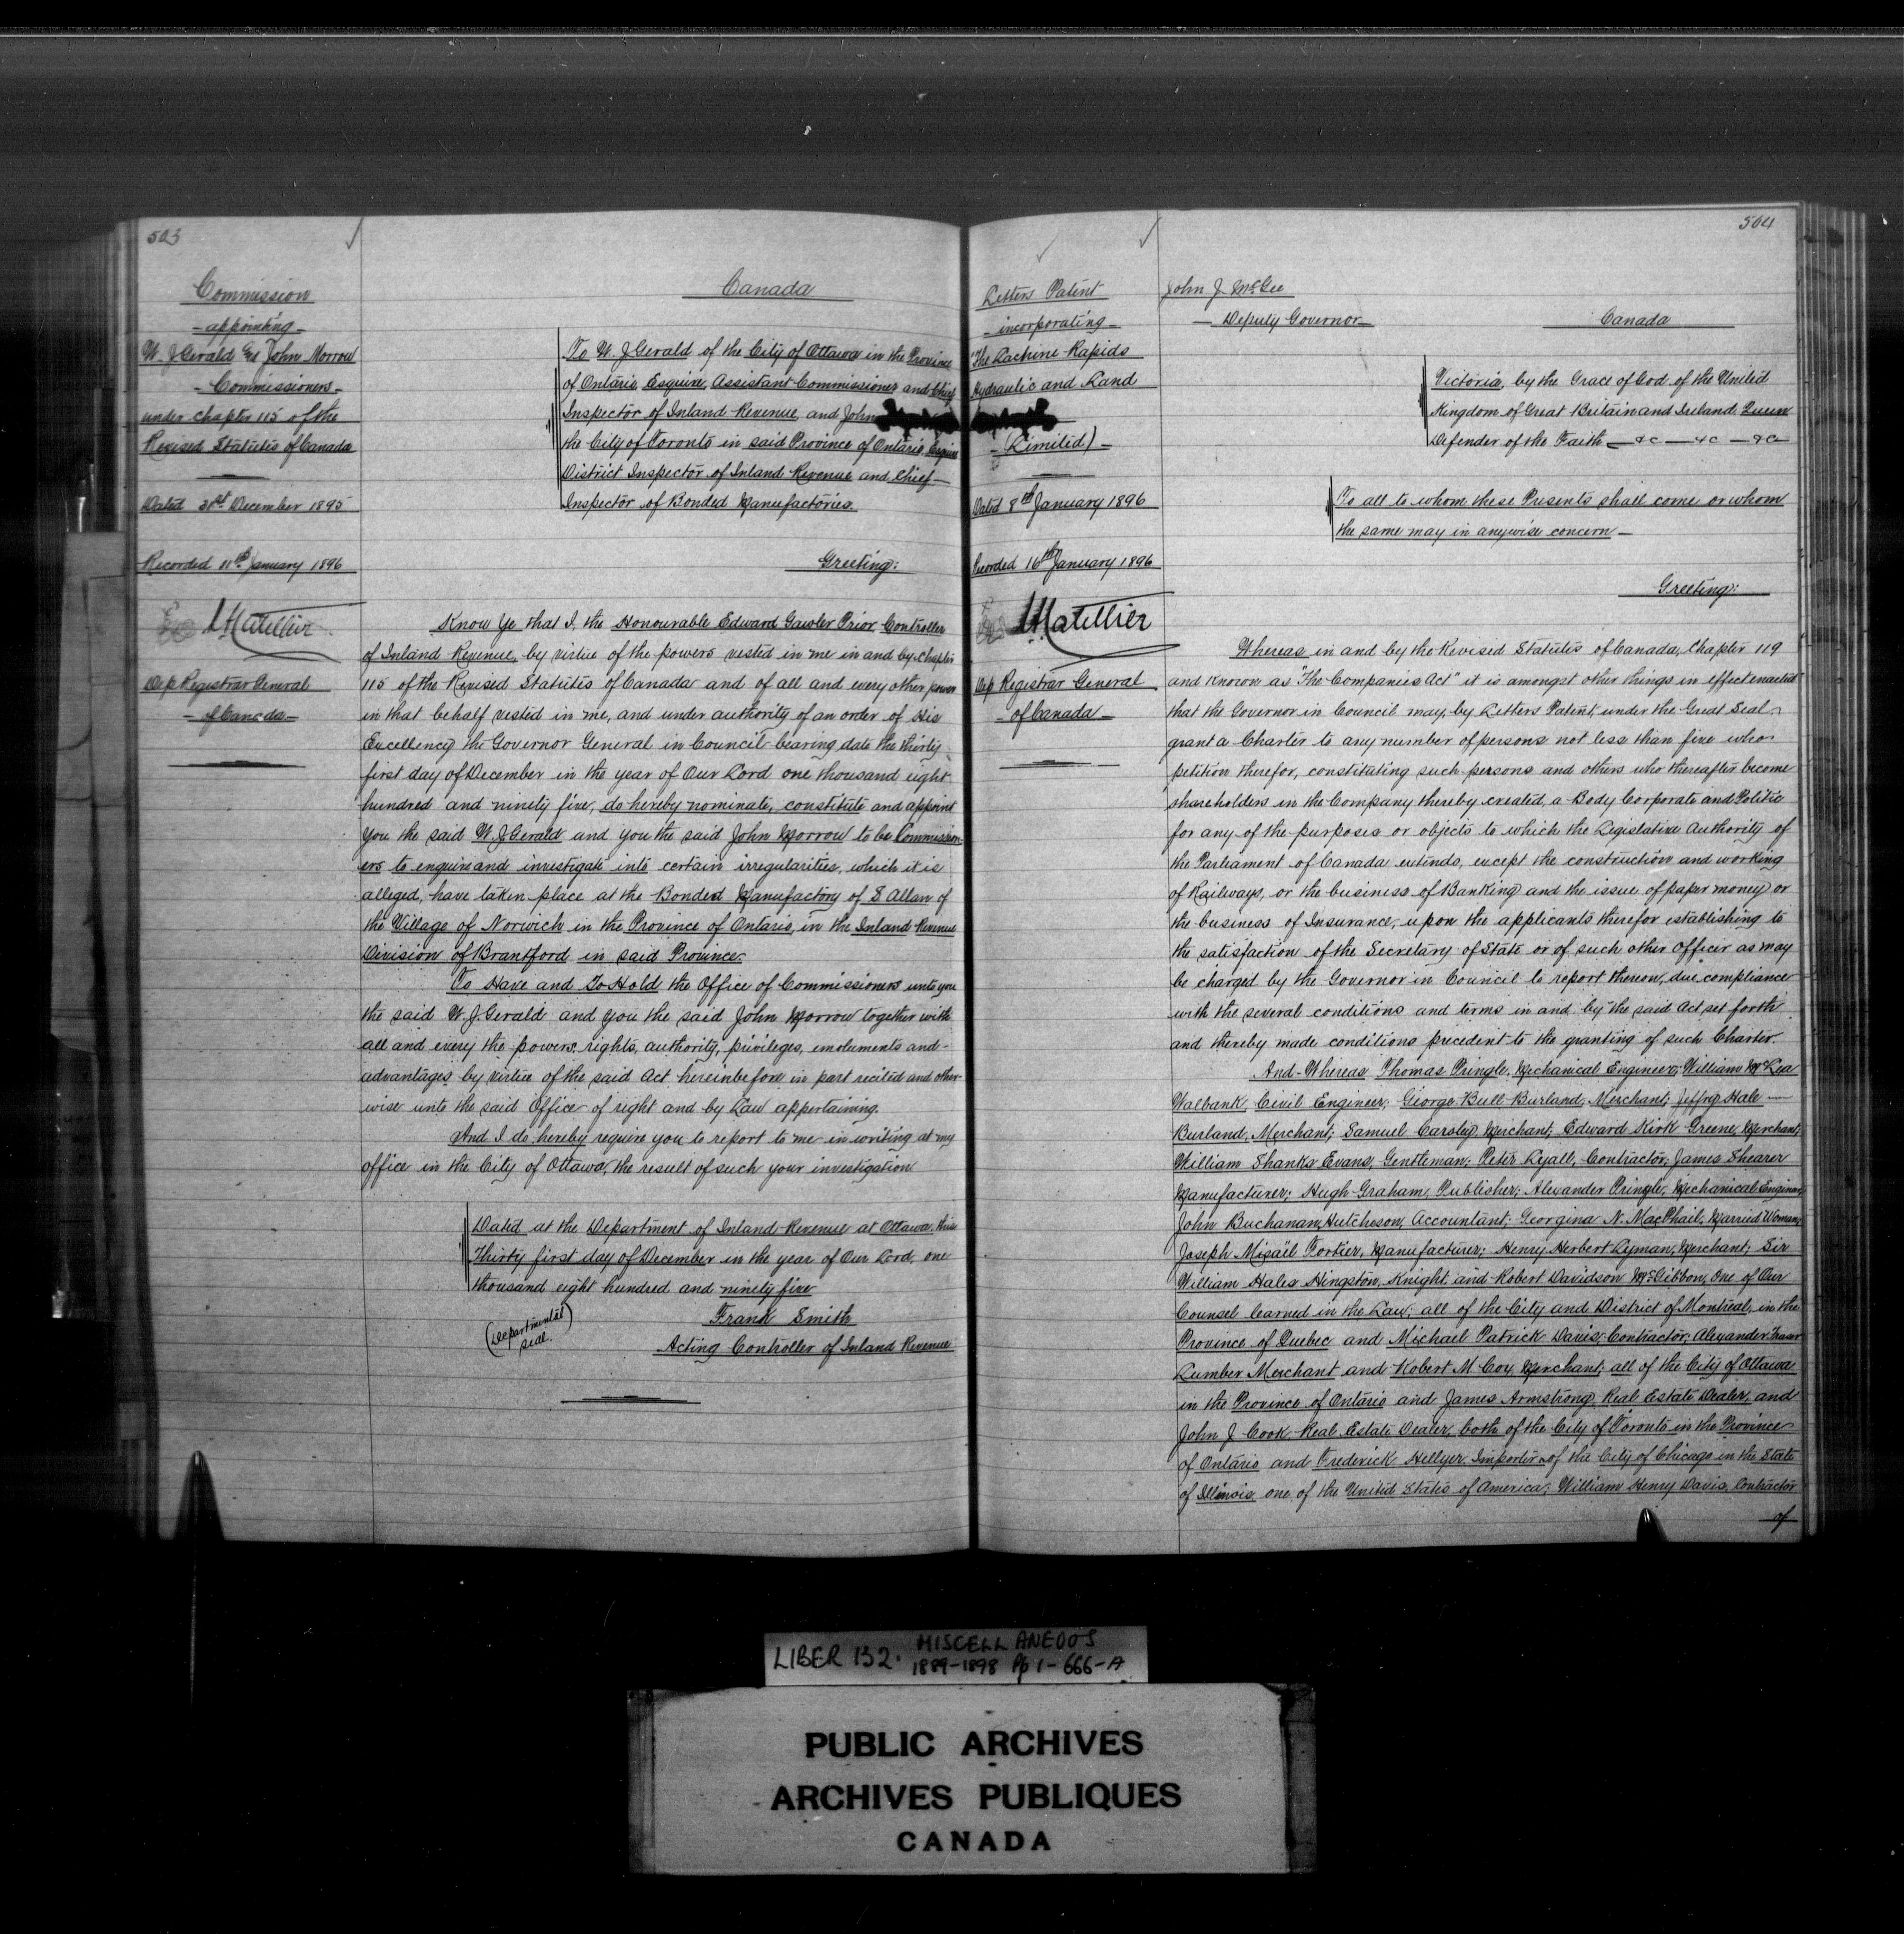 503
Commission
- appointing -
W. J Gerald & John Morrow
- Commissioners -
under chapter 115 of the
Revised Statutes of Canada
Dated 31st December 1895
Recorded 11th January 1896
Dep Registrar General
- of Canada -
Canada
To W. J Gerald of the City of Ottawa in the Province
of Ontario, Esquire, Assistant Commissioner and Chief
Inspector of Inland Revenue, and John
the City of Toronto in said Province of Ontario, Esquire
District Inspector of Inland Revenue and Chief
Inspector of Bonded Manufactories.
Greeting:
Know Ye that I, the Honourable Edward Gawler Prior, Controller
of Inland Revenue, by virtue of the powers vested in me in and by chapter
115 of the Revised Statutes of Canada and of all and every other power
in that behalf vested in me, and under authority of an order of His
Excellency the Governor General in Council bearing date the thirty
first day of December in the year of Our Lord one thousand eight
hundred and ninety five, do hereby nominate, constitute and appoint
you the said W. J. Gerald and you the said John Morrow to be Commission-
ers to enquire and investigate into certain irregularities, which it is
alleged, have taken place at the Bonded Manufactory of S Allan of
the Village of Norwich in the Province of Ontario, in the Inland Revenue
Division of Brantford in said Province.
To Have and To Hold the Office of Commissioners unto you
the said W. J. Gerald and you the said John Morrow together with
all and every the powers, rights, authority, privileges, emoluments and
advantages by virtue of the said Act hereinbefore in part recited and other-
wise unto the said Office of right and by Law appertaining.
And I do hereby require you to report to me in writing at my
office in the City of Ottawa, the result of such your investigation
Dated at the Department of Inland Revenue at Ottawa, this
Thirty first day of December in the year of Our Lord, one
thousand eight hundred and ninety five
(Departmental
seal.)
Frank Smith
Acting Controller of Inland Revenue
504
Letters Patent
- incorporating -
"The Lachine Rapids
Hydraulic and Land
(Limited) -
Dated 8th January 1896
Recorded 16th January 1896
Dep Registrar General
- of Canada -
John J. McGee
- Deputy Governor -
Canada
Victoria, by the Grace of God of the United
Kingdom of Great Britain and Ireland, Queen
Defender of the Faith - &c - &c - &c
To all to whom these Presents shall come or whom
the same may in anywise concern -
Greeting:
Whereas in and by the Revised Statutes of Canada, Chapter 119
and known as "The Companies Act" it is amongst other things in effect enacted
that the Governor in Council may, by Letters Patent, under the Great Seal
grant a Charter to any number of persons not less than five who
petition therefor, constituting such persons and others who thereafter become
shareholders in the Company thereby created, a Body Corporate and Politic
for any of the purposes or objects to which the Legislative Authority of
the Parliament of Canada extends, except the construction and working
of Railways, or the business of Banking and the issue of paper money or
the business of Insurance, upon the applicants therefor establishing to
the satisfaction of the Secretary of State or of such other Officer as may
be charged by the Governor in Council to report thereon, due compliance
with the several conditions and terms in and by the said Act set forth
and thereby made conditions precedent to the granting of such Charter.
And Whereas Thomas Pringle, Mechanical Engineer; William McLea
Walbank, Civil Engineer; George Bull Burland, Merchant; Jeffrey Hale
Burland, Merchant; Samuel Carsley, Merchant; Edward Kirk Greene, Merchant;
William Shanks Evans, Gentleman; Peter Lyall, Contractor; James Shearer
Manufacturer; Hugh Graham, Publisher; Alexander Pringle, Mechanical Engineer
John Buchanan Hutcheson, Accountant; Georgina N. MacPhail, Married Woman;
Joseph Misaël Fortier, Manufacturer; Henry Herbert Lyman, Merchant; Sir
William Hales Hingston, Knight and Robert Davidson McGibbon, One of Our
Counsel learned in the Law; all of the City and District of Montreal, in the
Province of Quebec and Michael Patrick Davis, Contractor; Alexander Fraser
Lumber Merchant and Robert M Cox, Merchant; all of the City of Ottawa
in the Province of Ontario and James Armstrong, Real Estate Dealer, and
John J Cook, Real Estate Dealer, both of the City of Toronto in the Province
of Ontario and Frederick Hellyer, Importer of the City of Chicago in the State
of Illinois, one of the United States of America; William Henry Davis, Contractor
of
LIBER 132. MISCELLANEOUS
1889-1898 Pp 1-666-A
PUBLIC ARCHIVES
ARCHIVES PUBLIQUES
CANADA